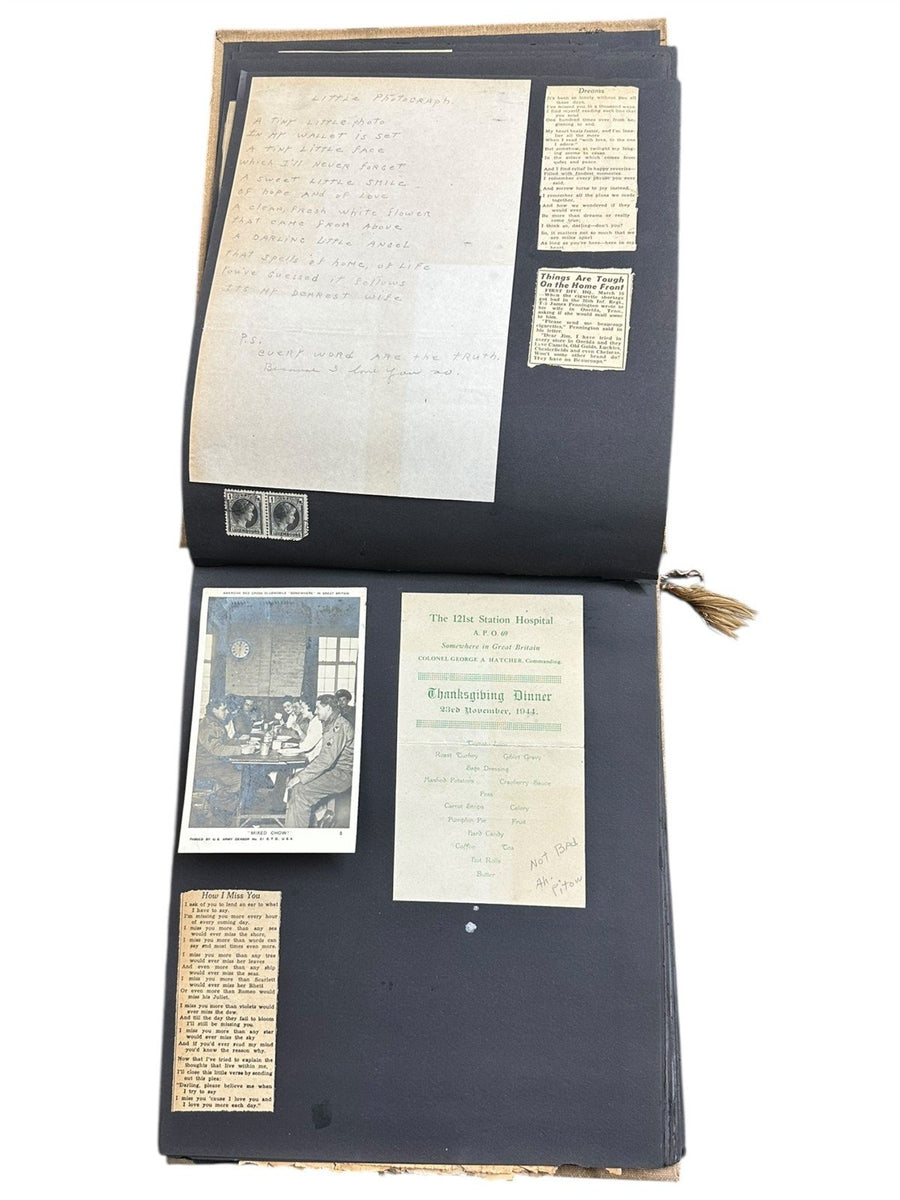 LITTLE PHOTOGRAPH.
A TINY LITTLE PHOTO
IN MY WALLET IS SET
A TINY LITTLE FACE
WHICH I'LL NEVER FORGET
A SWEET LITTLE SMILE
OF HOPE AND LOVE
A CLEAN, FRESH WHITE FLOWER
THAT CAME FROM ABOVE
A DARLING LITTLE ANGEL
THAT SPELLS OF HOME, OF LIFE
YOU'VE GUESSED IT FELLOWS
IT'S MY DEAREST WIFE
P.S.
EVERY WORD ARE THE TRUTH.
I love you so.
Dreams
It's been so lonely without you all
these days,
I've missed you in a thousand ways
I find myself reading each line that
you send
One hundred times over from be-
ginning to end.
My heart beats faster, and I'm lone-
lier all the more
When I read "with love, to the one
I adore."
But somehow, at twilight my long-
ing seems to cease
In the solace which comes from
quiet and peace.
And I find relief in happy reveries—
Filled with fondest memories.
I remember every phrase you ever
said,
And sorrow turns to joy instead.
I remember all the plans we made
together,
And how we wondered if they
would ever
Be more than dreams or really
come true;
I think so, darling—don't you?
So, it matters not so much that we
are miles apart
As long as you're here—here in my
heart.
Things Are Tough
On the Home Front
FIRST DIV. HQ., March
—When the cigarette shortage
got bad in the 26th Inf. Regt.,
T-5 James Pennington wrote to
his wife in Oneida, Tenn.,
asking if she would mail some
to him.
"Please send me beaucoup
cigarettes," Pennington said in
his letter.
"Dear Jim, I have tried in
every store in Oneida and they
have Camels, Old Golds, Luckies,
Chesterfields and even Chelseas.
Won't some other brand do?
They have no Beaucoups."
1 1
LUXEMBOURG LUXEMBOURG
AMERICAN RED CROSS CLUBMOBILE "SOMEWHERE" IN GREAT BRITAIN
"MIXED CHOW"
PASSED BY U.S. ARMY CENSOR
The 121st Station Hospital
A. P. O. 69
Somewhere in Great Britain
COLONEL GEORGE A HATCHER, Commanding.
Thanksgibing Dinner
23rd November, 1944.
Roast Turkey Giblet Gravy
Sage Dressing
Mashed Potatoes Cranberry Sauce
Peas
Carrot Strips Celery
Pumpkin Pie Fruit
Hard Candy
Coffee Tea
Hot Rolls
Butter
NOT BAD
Ah-
How I Miss You
I ask of you to lend an ear to what
I have to say.
I'm missing you more every hour
of every coming day.
I miss you more than any sea
would ever miss the shore,
I miss you more than words can
say and most times even more.
I miss you more than any tree
would ever miss her leaves
And even more than any ship
would ever miss the seas.
I miss you more than Scarlett
would ever miss her Rhett
Or even more than Romeo would
miss his Juliet.
I miss you more than violets would
ever miss the dew.
And till the day they fail to bloom
I'll still be missing you.
I miss you more than any star
would ever miss the sky
And if you'd ever read my mind
you'd know the reason why.
Now that I've tried to explain the
thoughts that live within me,
I'll close this little verse by sending
out this plea:
"Darling, please believe me when
I try to say
I miss you 'cause I love you and
I love you more each day."